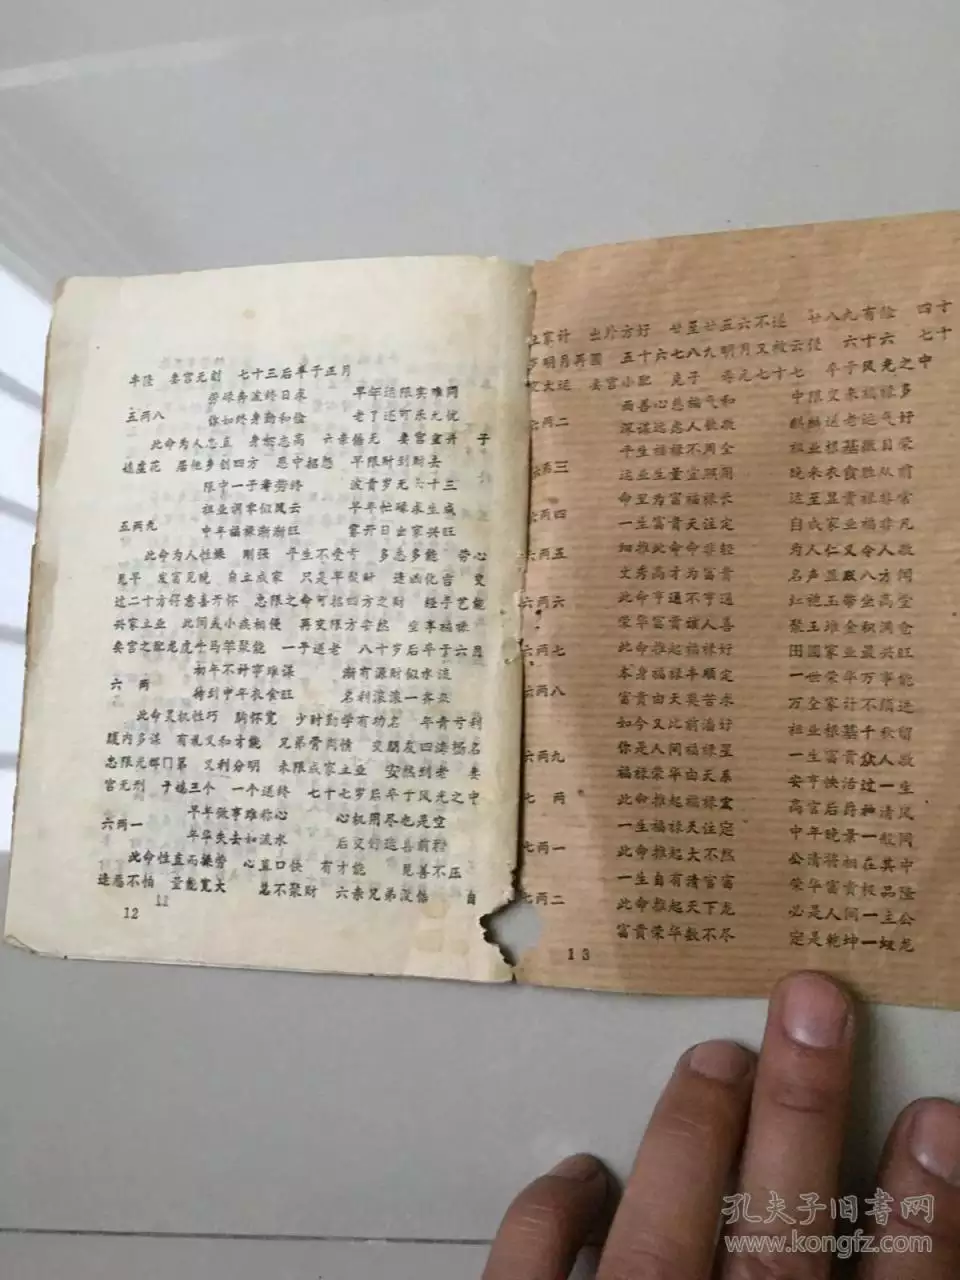 年隆 妻宫无刻 七十三后卒于正月
劳碌奔波终日求 早年运限实难同
五两八 你如终身勤和俭 老了还可乐无忧
此命为人忠直 身材志高 六亲俱无 妻宫重并 子
媳虚花 居他乡创四方 恩中招怨 早限财到财去
限中一子奉劳终 波贵岁元六十三
祖业凋零似风云 早年忙碌求生成
五两九 中年福禄渐渐旺 雾开日出家兴旺
此命为人性燥 刚强 平生不受亏 多志多能 劳心
见早 发富见晚 自立成家 只是早聚财 逢凶化吉 交
过二十方得意喜开怀 忠限之命可招四方之财 轻手艺能
兴家立业 此间或小疾相侵 再交限方安然 空享福禄
妻宫之配龙虎牛马竿聚能 一子送老 八十岁后卒于六月
初年不计事难谋 渐有源财似水流
六 两 待到中年衣食旺 名利滚滚一齐来
此命灵机性巧 胸怀宽 少时勤学有功名 年青亏利
腹内多谋 有礼义和才能 兄弟骨肉情 交朋友四海扬名
忠限光辉门第 义利分明 末限成家立业 安然到老 妻
宫无刑 子媳三个 一个送终 七十七岁后卒于风光之中
早年做事难称心 心机用尽也是空
六两一 年华失去如流水 后交好运喜前程
此命性直而操劳 心直口快 有才能 见善不压
逢恶不怕 量能宽大 是不聚财 六亲兄弟没估 自
12
11
立家计 出外方好 廿至廿五六不遂 廿八九有险 四十
岁明月再圆 五十六七八九明月又被云侵 六十六 七十
交大运 妻宫小配 克子 寿元七十七 卒于风光之中
面善心慈福气和 中限又来福禄多
六两二 深谋远虑人敬 麒麟送老运气好
平生福禄不周全 祖业根基微目荣
六两三 运业生量宜照闹 晚来衣食胜从前
命至为富福禄长 运至显贵禄非常
六两四 一生富贵天注定 自成家业福非凡
六两五 细推此命命非轻 为人仁义令人敬
文秀高才为富贵 名声显赫八方闻
六两六 此命亨通不亨通 红袍玉带坐高堂
荣华富贵该人喜 聚玉堆金积满仓
六两七 此命推起福禄好 田园家业最兴旺
本身福禄丰顺定 一世荣华万事能
六两八 富贵由天莫苦求 万全家计不须运
如今又比前番好 祖业根基千秋留
六两九 你是人间福禄星 一生富贵众人敬
福禄荣华由天系 安亨快活过一生
七 两 此命推起福禄宜 高官后爵和清风
一生福禄天注定 中年晚景一般同
七两一 此命推起大不然 公清将相在其中
一生自有清官富 荣华富贵极品隆
七两二 此命推起天下龙 必是人间一主公
富贵荣华数不尽 定是乾坤一蛟龙
13
孔夫子旧书网
www.kongfz.com